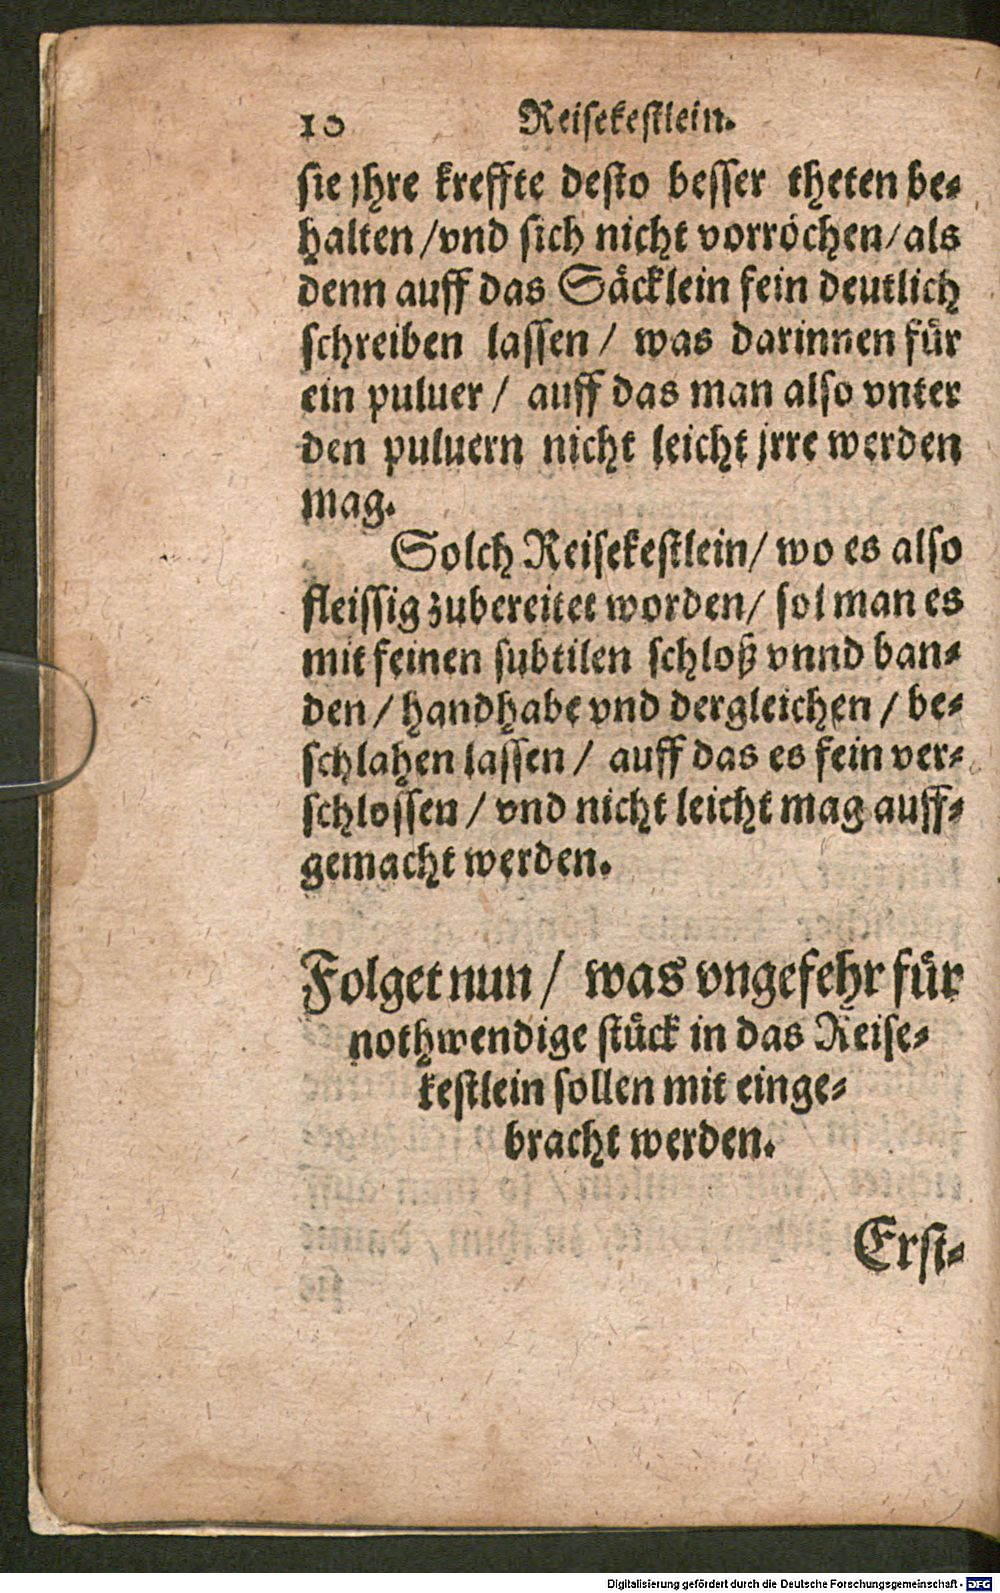 10 Reisekestlein.
sie jhre kreffte desto besser theten be-
halten / vnd sich nicht vorröchen / als
denn auff das Säcklein fein deutlich
schreiben lassen / was darinnen für
ein puluer / auff das man also vnter
den puluern nicht leicht jrre werden
mag.
Solch Reisekestlein / wo es also
fleissig zubereitet worden / sol man es
mit feinen subtilen schloß vnnd ban-
den / handhabe vnd dergleichen / be-
schlahen lassen / auff das es fein ver-
schlossen / vnd nicht leicht mag auff-
gemacht werden.
Folget nun / was vngefehr für
nothwendige stück in das Reise-
kestlein sollen mit einge-
bracht werden.
Erst-
Digitalisierung gefördert durch die Deutsche Forschungsgemeinschaft - DFG